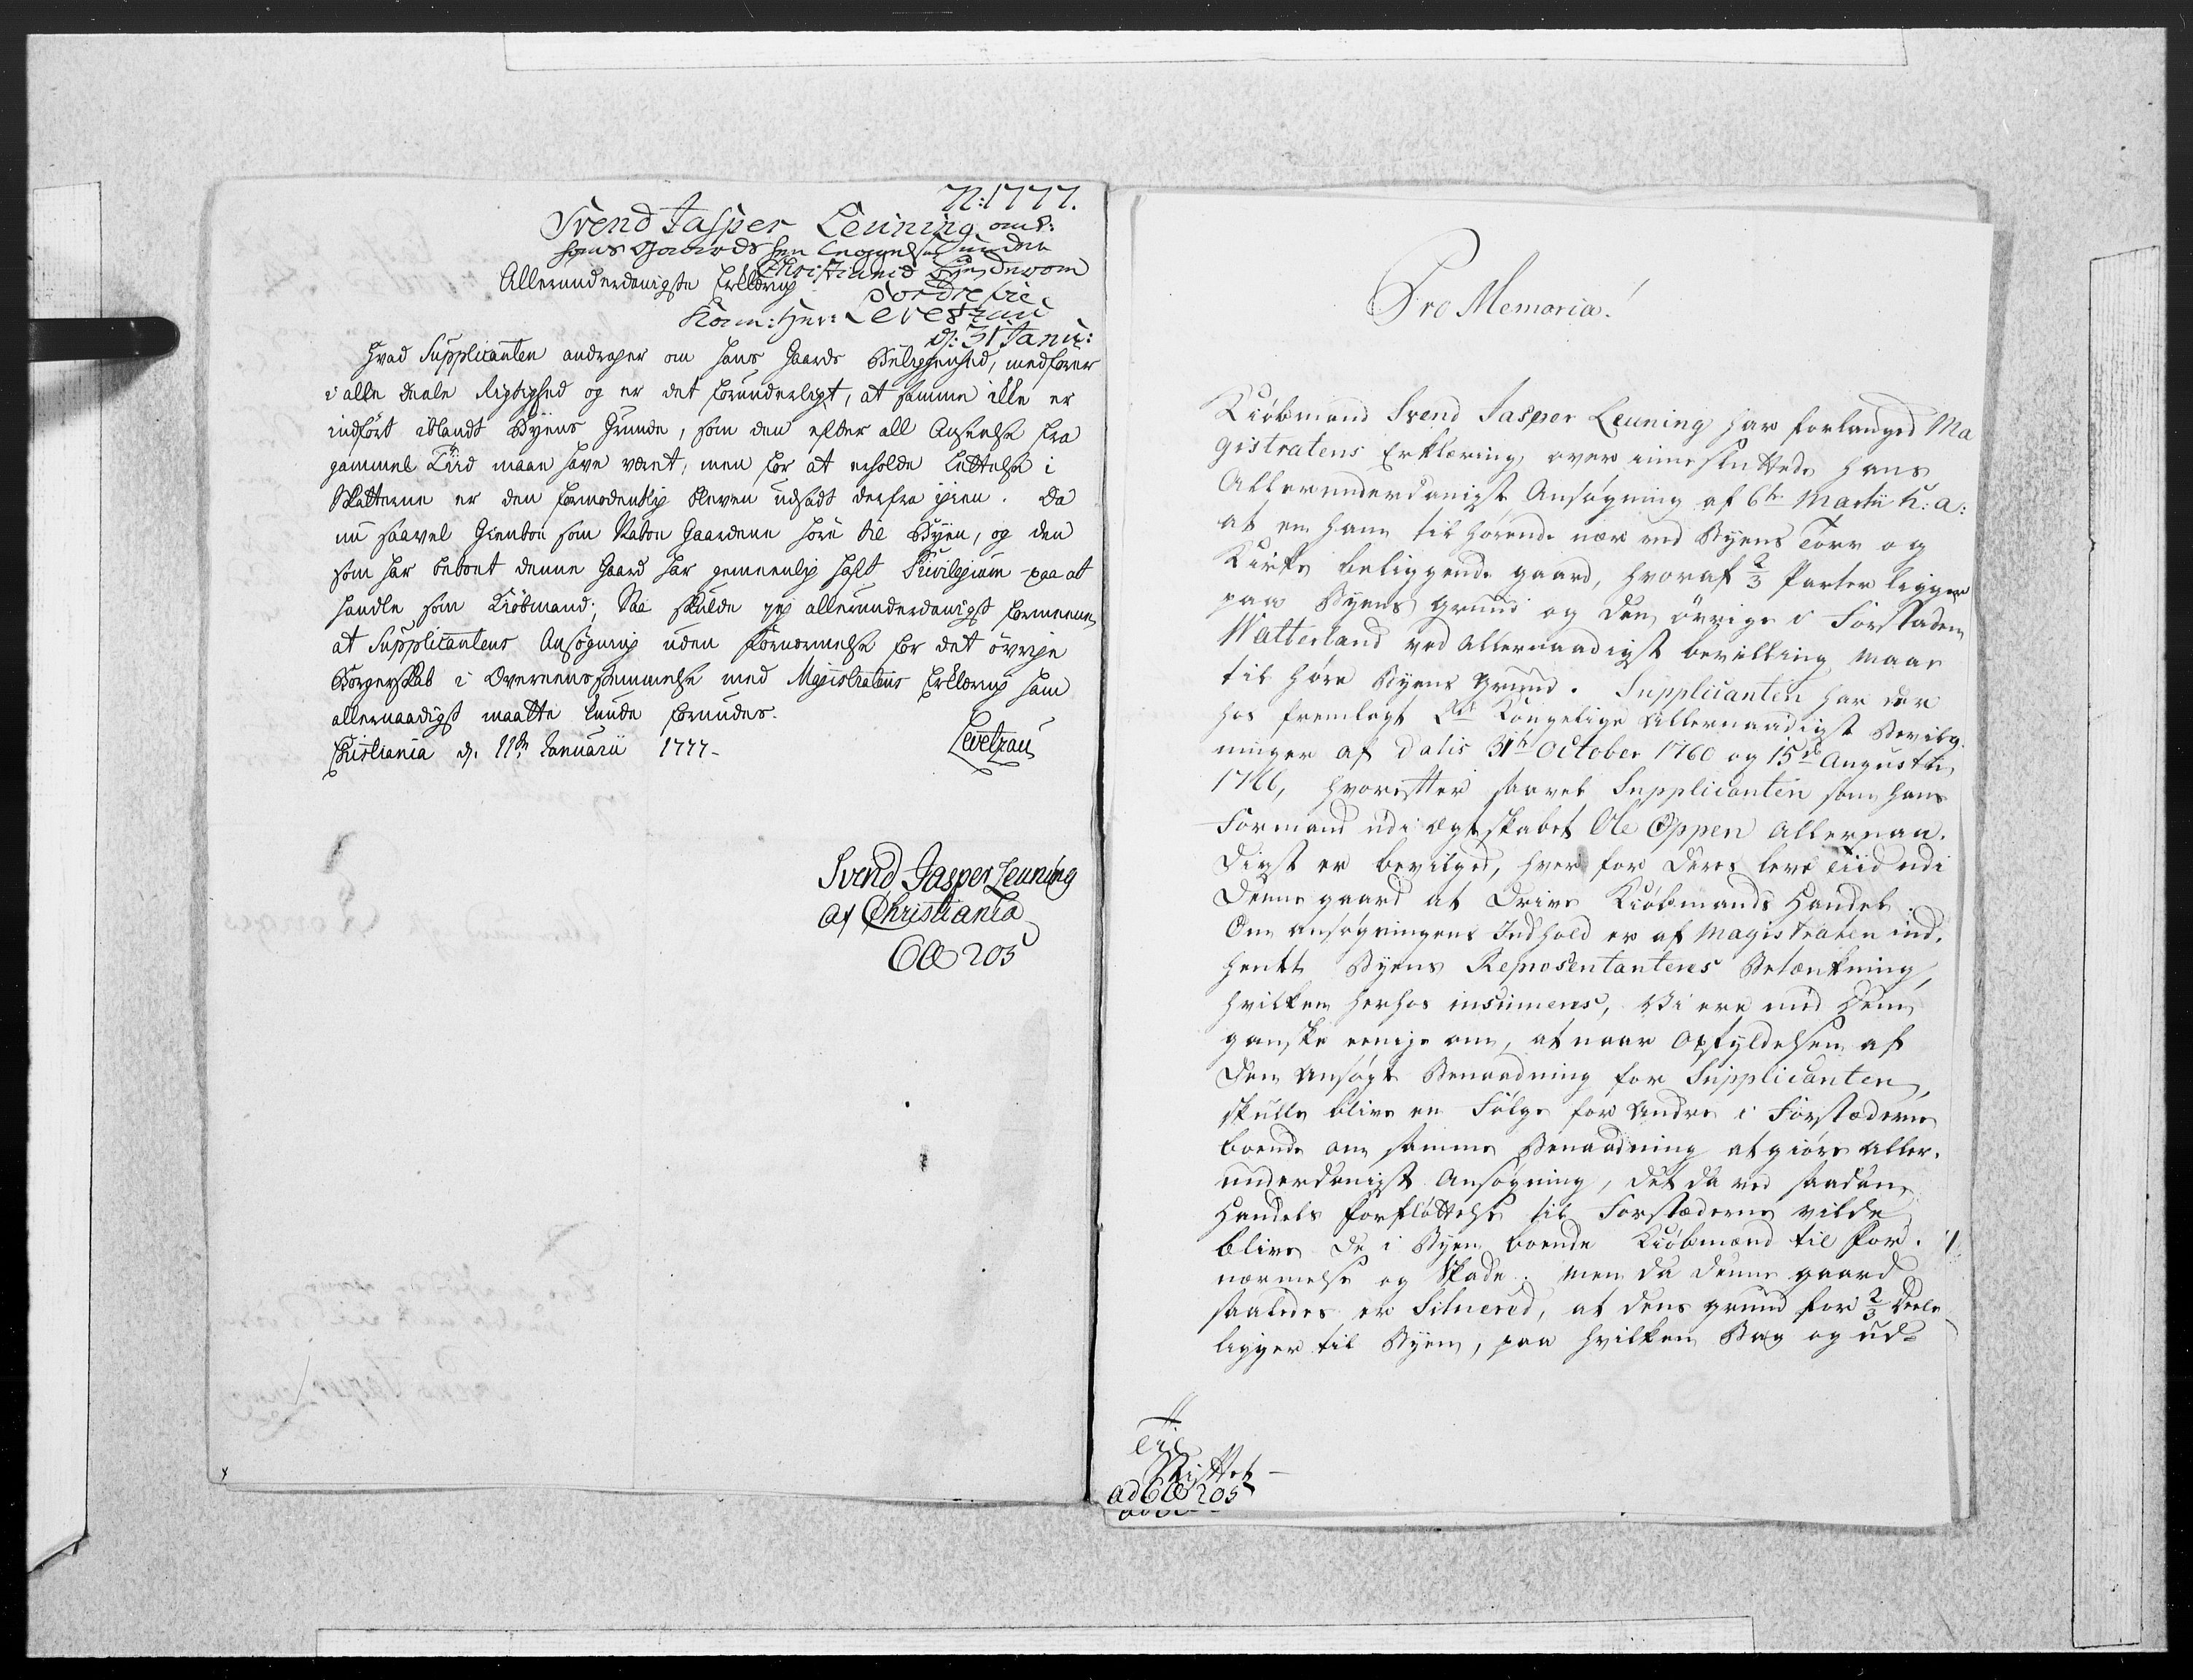 N: 1777.
Svend Jasper Leuning om
hans Gaards hen leggelse under
Christiania Byes Dvom
Allerunderdanigste Erklæring
Sordre fie
Kam: Her: Levetzau
d: 31 Janu:
Hvad Supplicanten andrager om hans Gaards Beliggenhed, medfører
i alle Deele Rigtighed og er det forunderligt, at samme ikke er
indført iblandt Byens Grunde, som den efter all Anseelse fra
gammel Tiid maae have været, men for at erholde Lettelse i
Skatterne er den formodentlig bleven udsadt derfra igien. Da
nu saavel Gienboe som Naboe Gaardene høre til Byen, og den
som har beboet denne Gaard har gemeenlig haft Privilegium paa at
handle som Kiøbmand; Saa skulde jeg allerunderdanigst formeene,
at Supplicantens Ansøgning uden Fornærmelse for det øvrige
Borgerskab i Overeensstemmelse med Magistratens Erklæring ham
allernaadigst maatte kunde forundes.
Christiania d. 11te Januarii 1777.
Levetzau
Svend Jasper Leuning
af Christiania
205
Pro Memoria!
Kiøbmand Svend Jasper Leuning har forlanged Ma
gistratens Erklæring over indesluttede hans
Allerunderdanigst Ansøgning af 6te Martii h: a:
at en ham til hørende nær ved Byens Torv og
Kirke beliggende gaard, hvoraf 2/3 Parter ligger
paa Byens grund og den øvrige i Forstaden
Watterland ved Allernaadigst bevilling maae
til høre Byens Grund. Supplicanten har der
hos fremlagt 2de Kongelige Allernaadigst Bevilg.
ninger af datis 31te October 1760 og 15de Augusti
1766, hvorefter saavel Supplicanten som hans
Formand udi Ægteskabet Ole Oppen Allernaa.
digst er bevilged, hver for deres levetiid udi
denne gaard at drive Kiøbmands Handel.
Om ansøgningens Indhold er af Magistraten ind.
hentt Byens Repræsentanteres Betænkning,
hvilken herhos insinueres, Vi ere med dem
ganske eenige om, at naar Opfyldelsen af
den Ansøgte Benaadning for Supplicanten,
skulle blive en Følge for Andre i Forstæderne
boende om samme Benaadning at giøre Aller.
underdanigst Ansøgning, det da ved saadan
Handels forfløttelse til Forstæderne vilde
blive de i Byen boende Kiøbmænd til For.
nærmelse og Skade. men da denne gaard
saaledes er Situered, at dens grund for 2/3 Deele
ligger til Byen, paa hvilken Bag og ud-
Til
Stiftet
ad 205